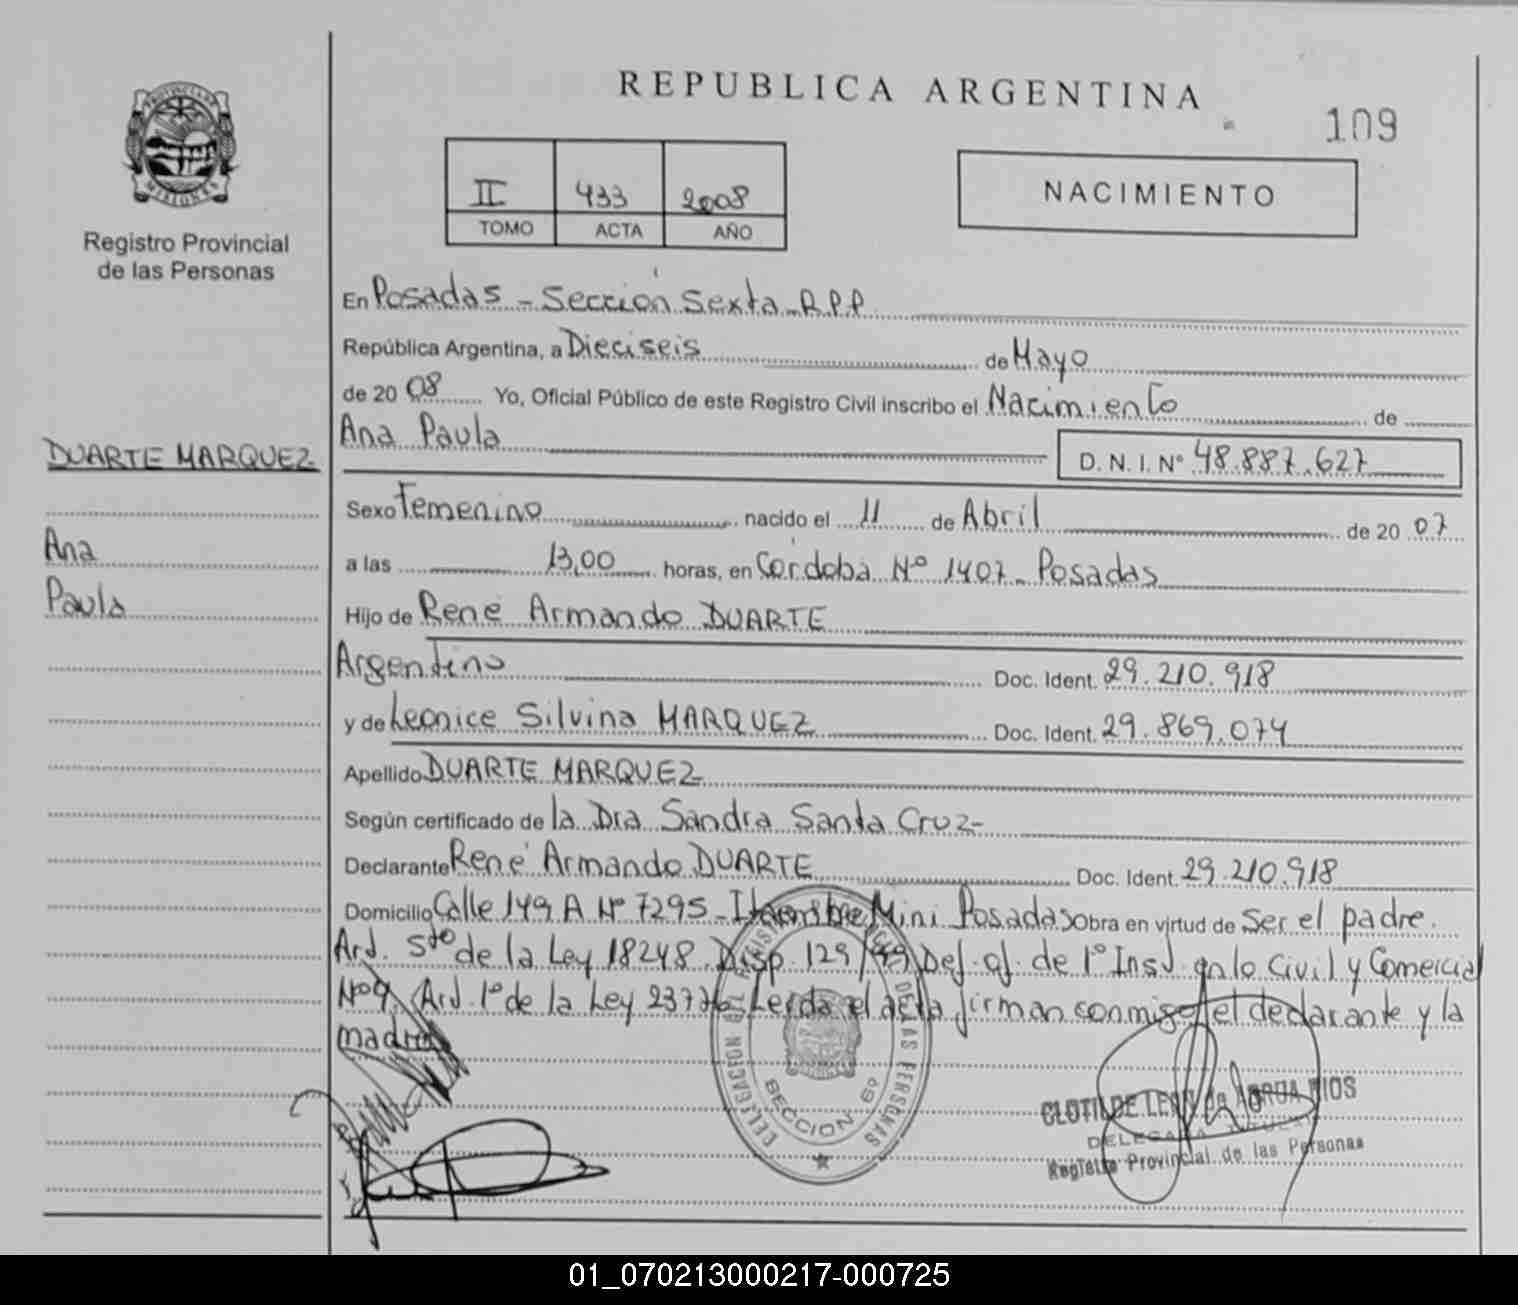 REPUBLICA ARGENTINA
109
PROVINCIA DE
MISIONES
Registro Provincial
de las Personas
II 433 2008
TOMO ACTA AÑO
NACIMIENTO
En Posadas - Sección Sexta - R.P.P.
República Argentina, a Dieciseis de Mayo
de 20 08 Yo, Oficial Público de este Registro Civil inscribo el Nacimiento de
Ana Paula D. N. I. N° 48.887.627
DUARTE MARQUEZ
Ana
Paula
Sexo Femenino nacido el 11 de Abril de 20 07
a las 13,00 horas, en Córdoba Nº 1407 - Posadas
Hijo de René Armando DUARTE
Argentino Doc. Ident. 29.210.918
y de Leonice Silvina MARQUEZ Doc. Ident. 29.869.074
Apellido DUARTE MARQUEZ
Según certificado de la Dra Sandra Santa Cruz-
Declarante René Armando DUARTE Doc. Ident. 29.210.918
Domicilio Calle 149 A Nº 7295 - Itaembe Mini Posadas Obra en virtud de Ser el padre.
Ard. 5to de la Ley 18248. Disp. 129/99 Def. of. de 1° Inst. en lo Civil y Comercial
Nº 4. Ard. 1° de la Ley 23776. Leida el acta firman conmigo el declarante y la
madre
DELEGACION DEL REGISTRO PROVINCIAL DE LAS PERSONAS
SECCION 6º
CLOTILDE de RIOS
DELEGADA
Registro Provincial de las Personas
01_070213000217-000725